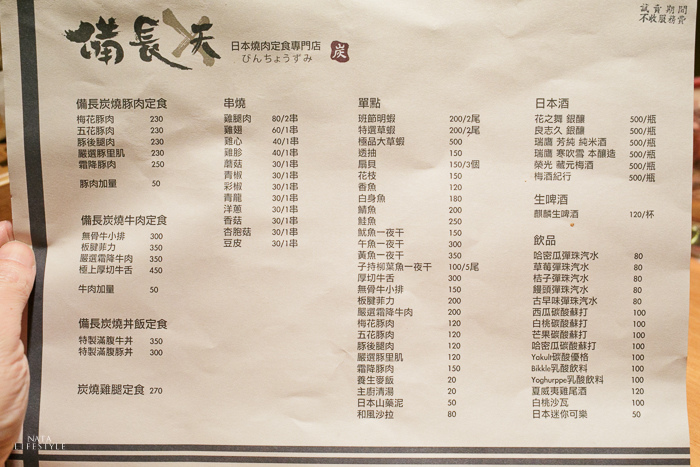 備長天
日本燒肉定食專門店
びんちょうずみ
炭
試賣期間
不收服務費
備長炭燒豚肉定食
梅花豚肉 230
五花豚肉 230
豚後腿肉 230
嚴選豚里肌 230
霜降豚肉 250
豚肉加量 50
備長炭燒牛肉定食
無骨牛小排 300
板腱菲力 350
嚴選霜降牛肉 350
極上厚切牛舌 450
牛肉加量 50
備長炭燒丼飯定食
特製滿腹牛丼 350
特製滿腹豚丼 300
炭燒雞腿定食 270
串燒
雞腿肉 80/2串
雞翅 60/1串
雞心 40/1串
雞胗 40/1串
蘑菇 30/1串
青椒 30/1串
彩椒 30/1串
青龍 30/1串
洋蔥 30/1串
香菇 30/1串
杏胞菇 30/1串
豆皮 30/1串
單點
班節明蝦 200/2尾
特選草蝦 200/2尾
極品大草蝦 500
透抽 150
扇貝 150/3個
花枝 150
香魚 120
白身魚 180
鯖魚 200
鮭魚 250
魷魚一夜干 150
午魚一夜干 300
黃魚一夜干 350
子持柳葉魚一夜干 100/5尾
厚切牛舌 300
無骨牛小排 150
板腱菲力 200
嚴選霜降牛肉 200
梅花豚肉 120
五花豚肉 120
豚後腿肉 120
嚴選豚里肌 120
霜降豚肉 150
養生麥飯 20
主廚清湯 20
日本山藥泥 50
和風沙拉 80
日本酒
花之舞 銀釀 500/瓶
良志久 銀釀 500/瓶
瑞鷹 芳純 純米酒 500/瓶
瑞鷹 寒吹雪 本釀造 500/瓶
榮光 藏元梅酒 500/瓶
梅酒紀行 500/瓶
生啤酒
麒麟生啤酒 120/杯
飲品
哈密瓜彈珠汽水 80
草莓彈珠汽水 80
桔子彈珠汽水 80
饅頭彈珠汽水 80
古早味彈珠汽水 80
西瓜碳酸蘇打 100
白桃碳酸蘇打 100
芒果碳酸蘇打 100
哈密瓜碳酸蘇打 100
Yakult碳酸優格 100
Bikkle乳酸飲料 100
Yoghurppe乳酸飲料 100
夏威夷雞尾酒 120
白桃沙瓦 100
日本迷你可樂 50
NATA
LIFESTYLE